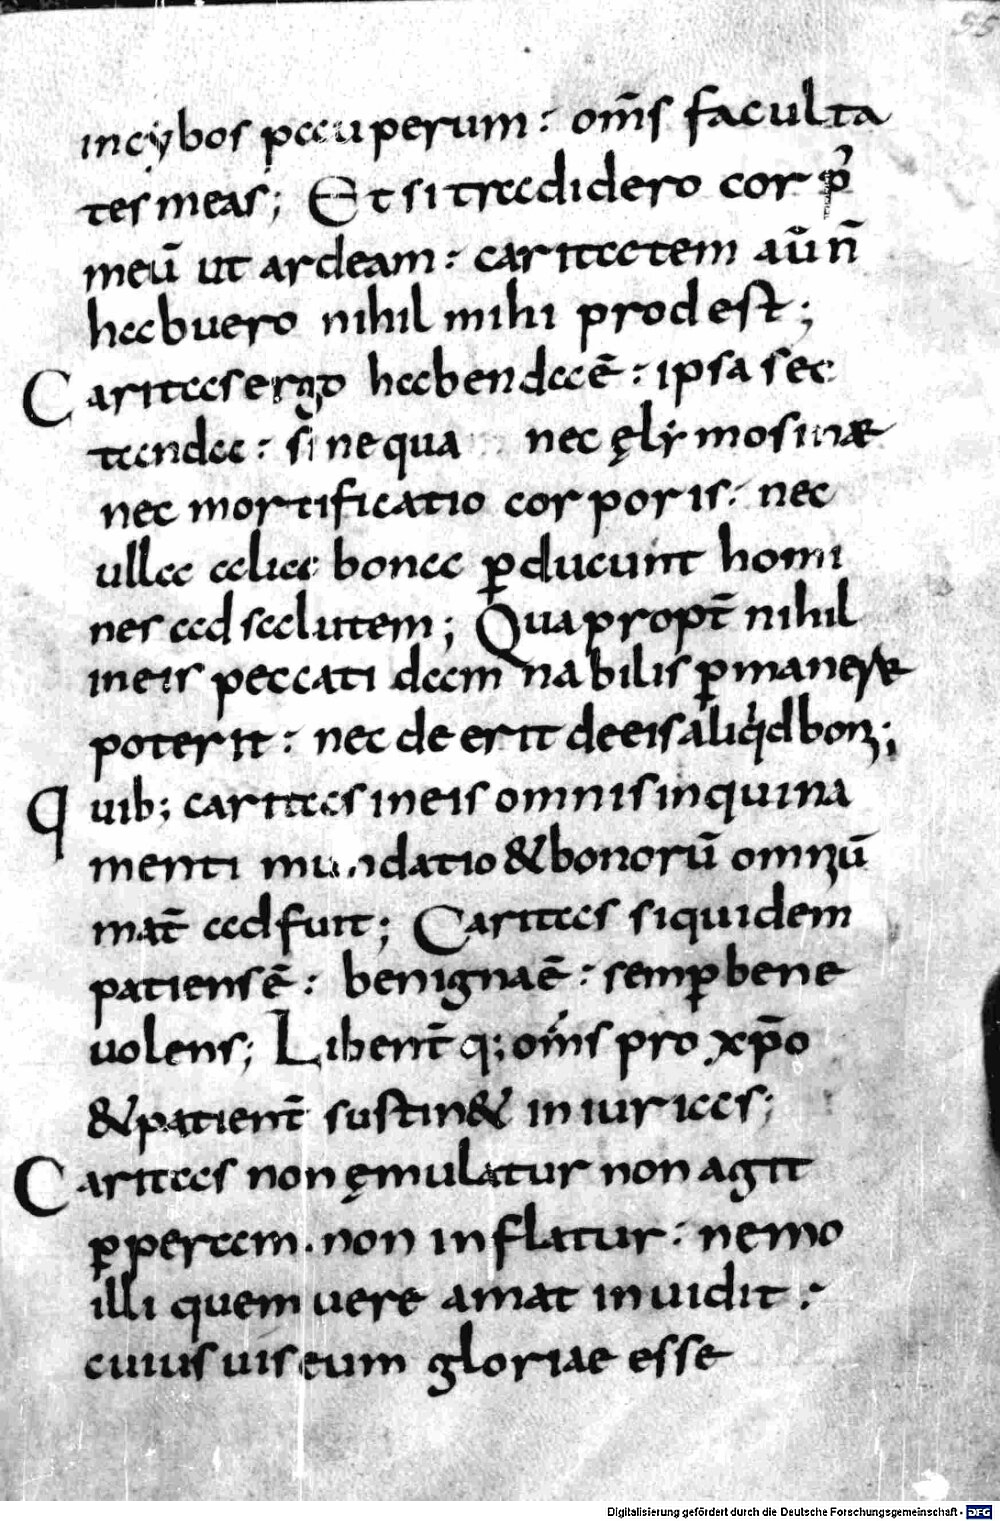 55
incybos pauperum : om̄s faculta
tes meas; Et si tradidero corp᷒
meū ut ardeam : caritatem aūn̄
habuero nihil mihi prodest;
Caritas ergo habenda ē : ipsa sec
tanda : sine qua nec ęlymosinæ
nec mortificatio corporis : nec
ulla alia bona ꝑducunt homi
nes ad salutem; Quapropt̄ nihil
in eis peccati damnabilis ꝑmanere
poterit : nec deerit de eis aliq̇d bonꝝ;
Quib; caritas in eis omnis inquina
menti mundatio & bonorū omniū
mat̄ adfuit; Caritas siquidem
patiens ē : benigna ē : semꝑ bene
uolens; Libent̄q; om̄s pro xp̄o
& patient̄ sustin& iniurias;
Caritas non ęmulatur non agit
ꝑperam . non inflatur : nemo
illi quem uere amat inuidit :
cuius uis eum gloriae esse
Digitalisierung gefördert durch die Deutsche Forschungsgemeinschaft - DFG